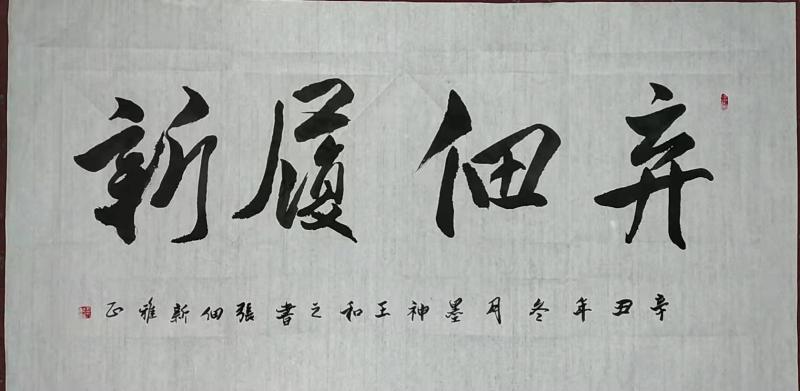 弃佃履新
辛丑年冬月墨神王和之書張佃新雅正